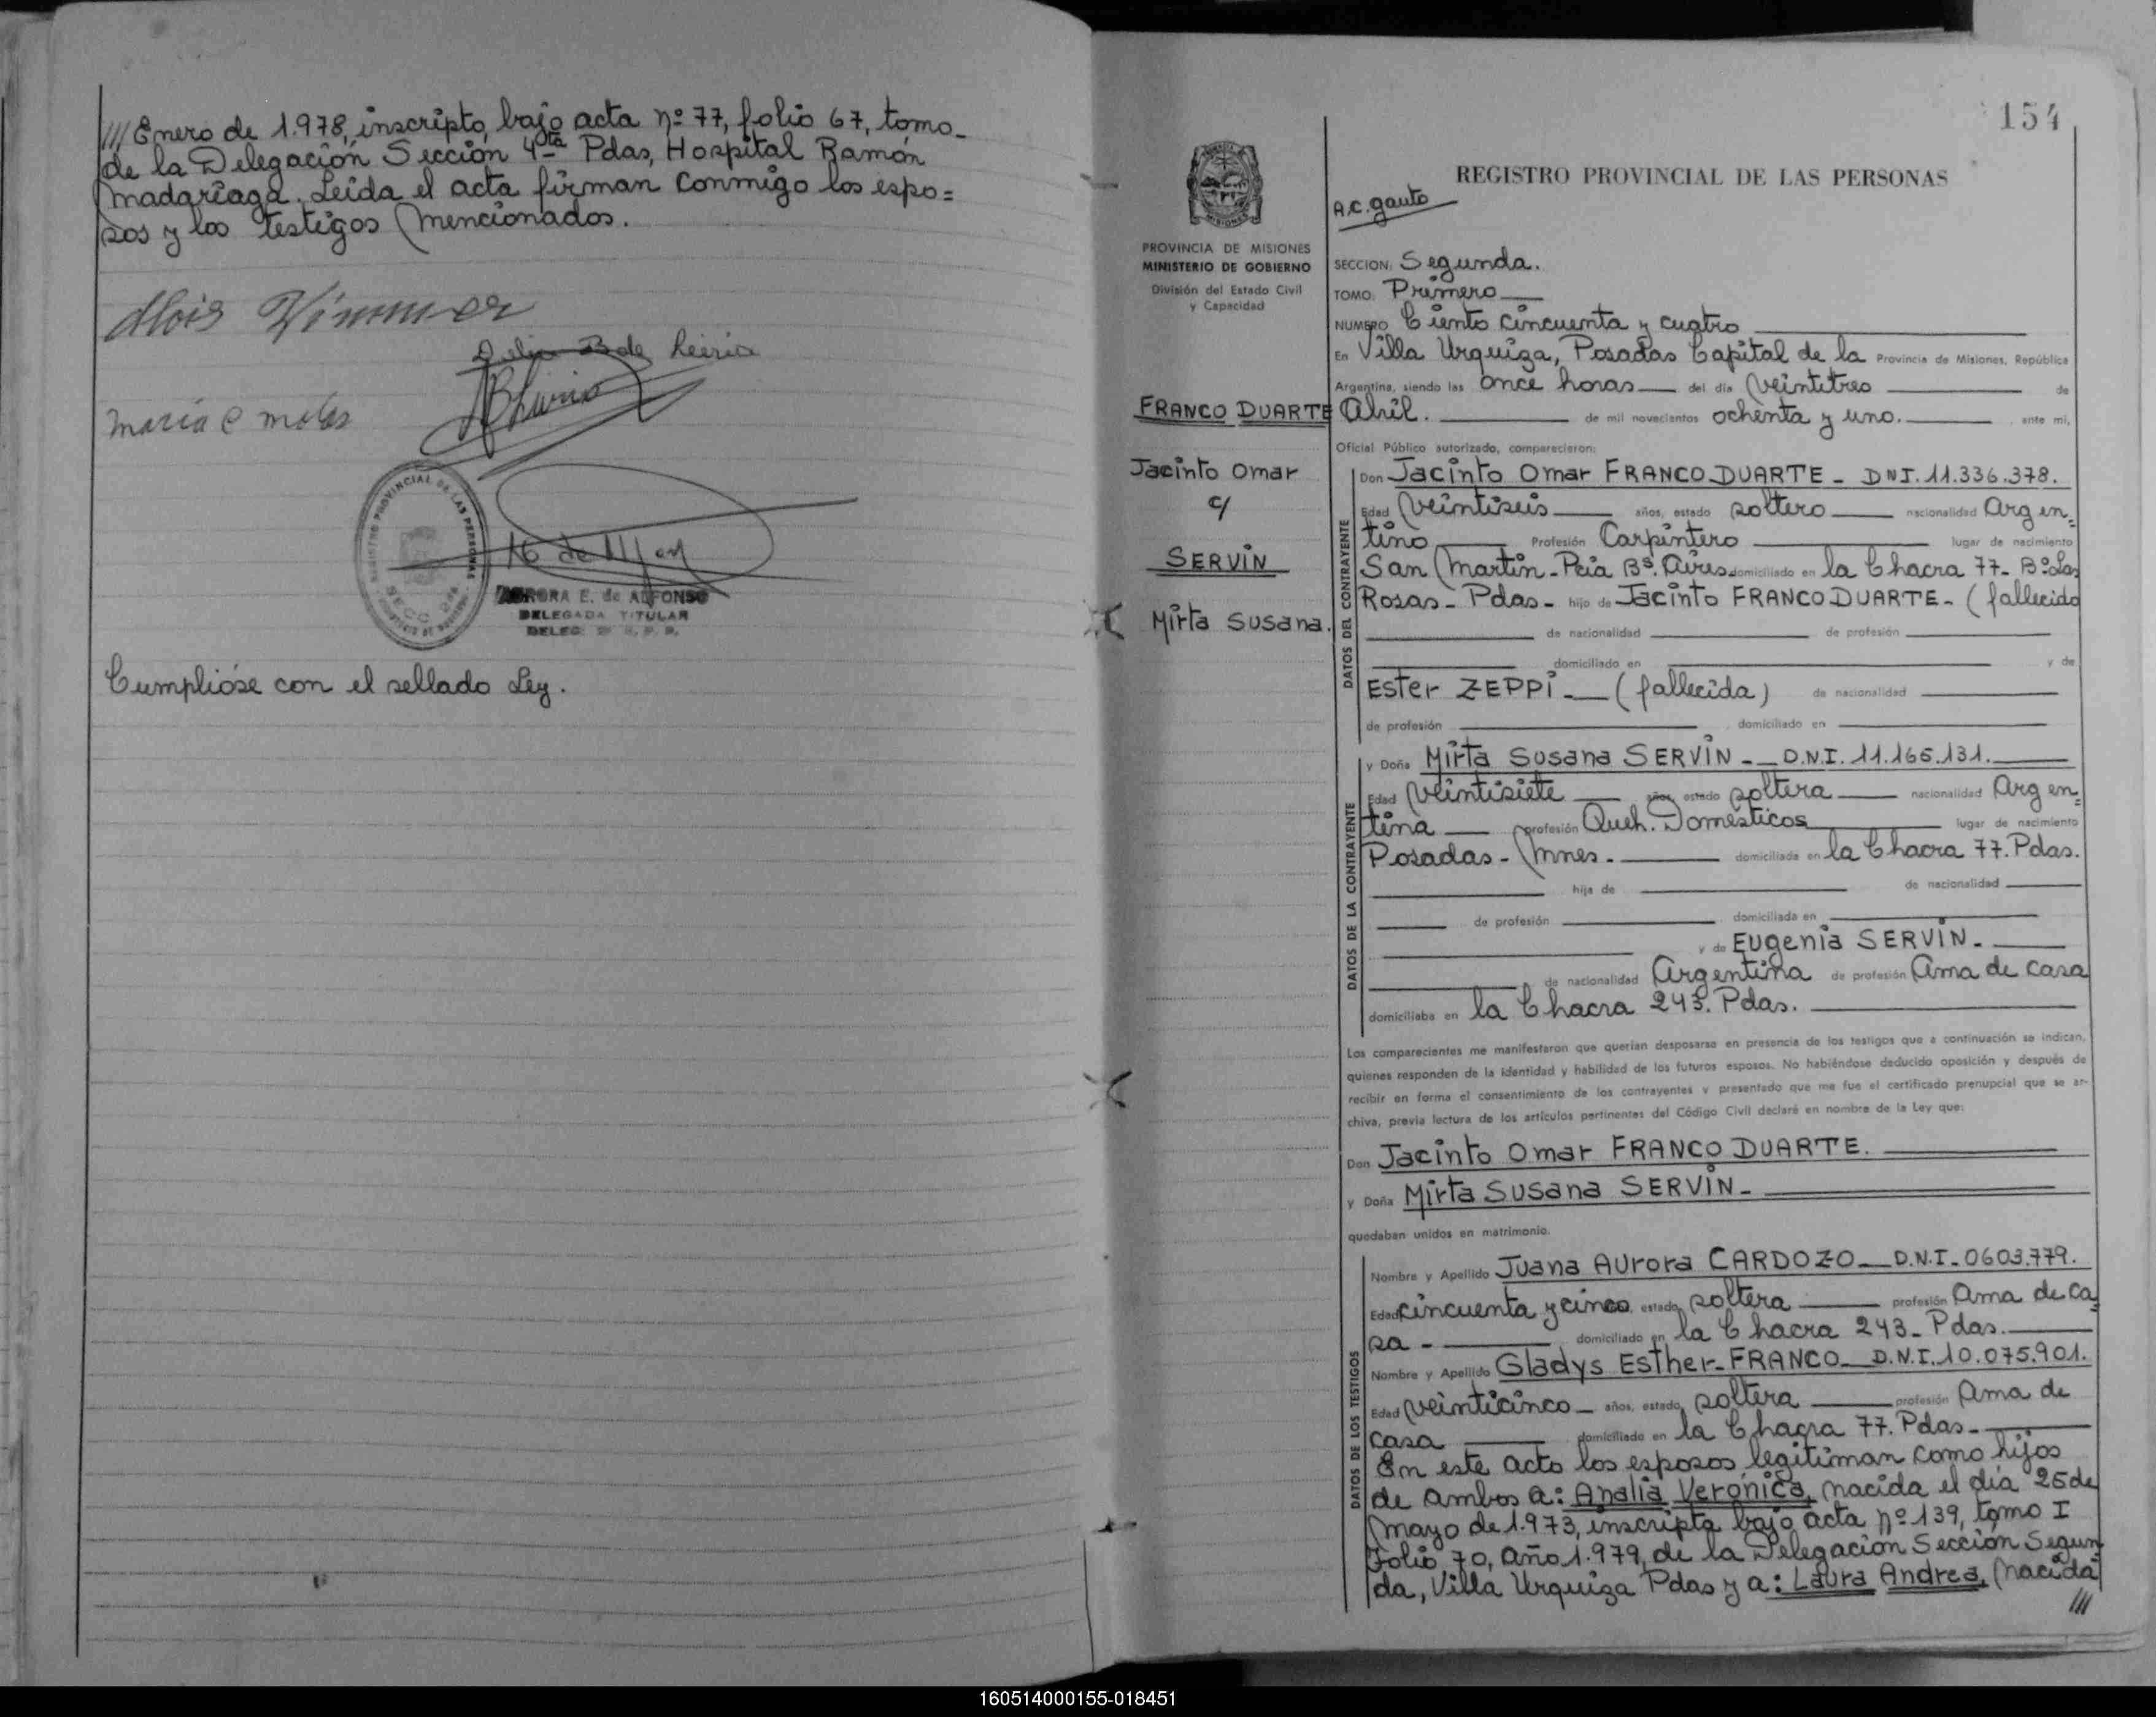 /// Enero de 1.978, inscripto, bajo acta nº 77, folio 67, tomo-
de la Delegación Sección 4ta Pdas, Hospital Ramón
Madariaga. Leída el acta firman conmigo los espo=
sos y los testigos mencionados.
Alois Vimmer
Delia B de
REGISTRO PROVINCIAL DE LAS PERSONAS
AURORA E. de ALFONSO
DELEGADA TITULAR
Cumplióse con el sellado Ley.
154
REGISTRO PROVINCIAL DE LAS PERSONAS
A.C. Gauto
MISIONES
PROVINCIA DE MISIONES
MINISTERIO DE GOBIERNO
División del Estado Civil
y Capacidad
FRANCO DUARTE
Jacinto Omar
c/
SERVIN
Mirta Susana.
SECCION: Segunda.
TOMO: Primero
NUMERO Ciento cincuenta y cuatro
En Villa Urquiza, Posadas Capital de la Provincia de Misiones, República
Argentina, siendo las once horas del día veintitres de
Abril. de mil novecientos ochenta y uno. ante mi,
Oficial Público autorizado, comparecieron:
DATOS DEL CONTRAYENTE
Don Jacinto Omar FRANCO DUARTE - DNI. 11.336.378.
Edad veintiseis años, estado soltero nacionalidad Argen=
tino Profesión Carpintero lugar de nacimiento
San Martin - Pcia Bs. Aires domiciliado en la Chacra 77 - Bº Las
Rosas - Pdas - hijo de Jacinto FRANCO DUARTE - (fallecido
de nacionalidad de profesión
domiciliado en y de
Ester ZEPPI - (fallecida) de nacionalidad
de profesión domiciliado en
DATOS DE LA CONTRAYENTE
y Doña Mirta Susana SERVIN - D.N.I. 11.165.131.
Edad veintisiete años, estado soltera nacionalidad Argen=
tina profesión Queh. Domésticos lugar de nacimiento
Posadas - Mnes. domiciliada en la Chacra 77. Pdas.
hija de de nacionalidad
de profesión domiciliada en
y de Eugenia SERVIN.
de nacionalidad Argentina de profesión Ama de casa
domiciliaba en la Chacra 243. Pdas.
Los comparecientes me manifestaron que querían desposarse en presencia de los testigos que a continuación se indican,
quienes responden de la identidad y habilidad de los futuros esposos. No habiéndose deducido oposición y después de
recibir en forma el consentimiento de los contrayentes y presentado que me fue el certificado prenupcial que se ar-
chiva, previa lectura de los artículos pertinentes del Código Civil declaré en nombre de la Ley que:
Don Jacinto Omar FRANCO DUARTE.
y Doña Mirta Susana SERVIN -
quedaban unidos en matrimonio.
DATOS DE LOS TESTIGOS
Nombre y Apellido Juana Aurora CARDOZO - D.N.I. 0603.779.
Edad cincuenta y cinco, estado soltera profesión Ama de ca=
sa - domiciliado en la Chacra 243 - Pdas.
Nombre y Apellido Gladys Esther - FRANCO - D.N.I. 10.075.901.
Edad veinticinco - años, estado soltera profesión Ama de
casa domiciliado en la Chacra 77. Pdas -
En este acto los esposos legitiman como hijos
de ambos a: Analia Veronica, nacida el día 25 de
mayo de 1.973, inscripta bajo acta nº 139, tomo I
Folio 70, año 1.979, de la Delegación Sección Segun
da, Villa Urquiza Pdas y a: Laura Andrea, nacida
///
160514000155-018451